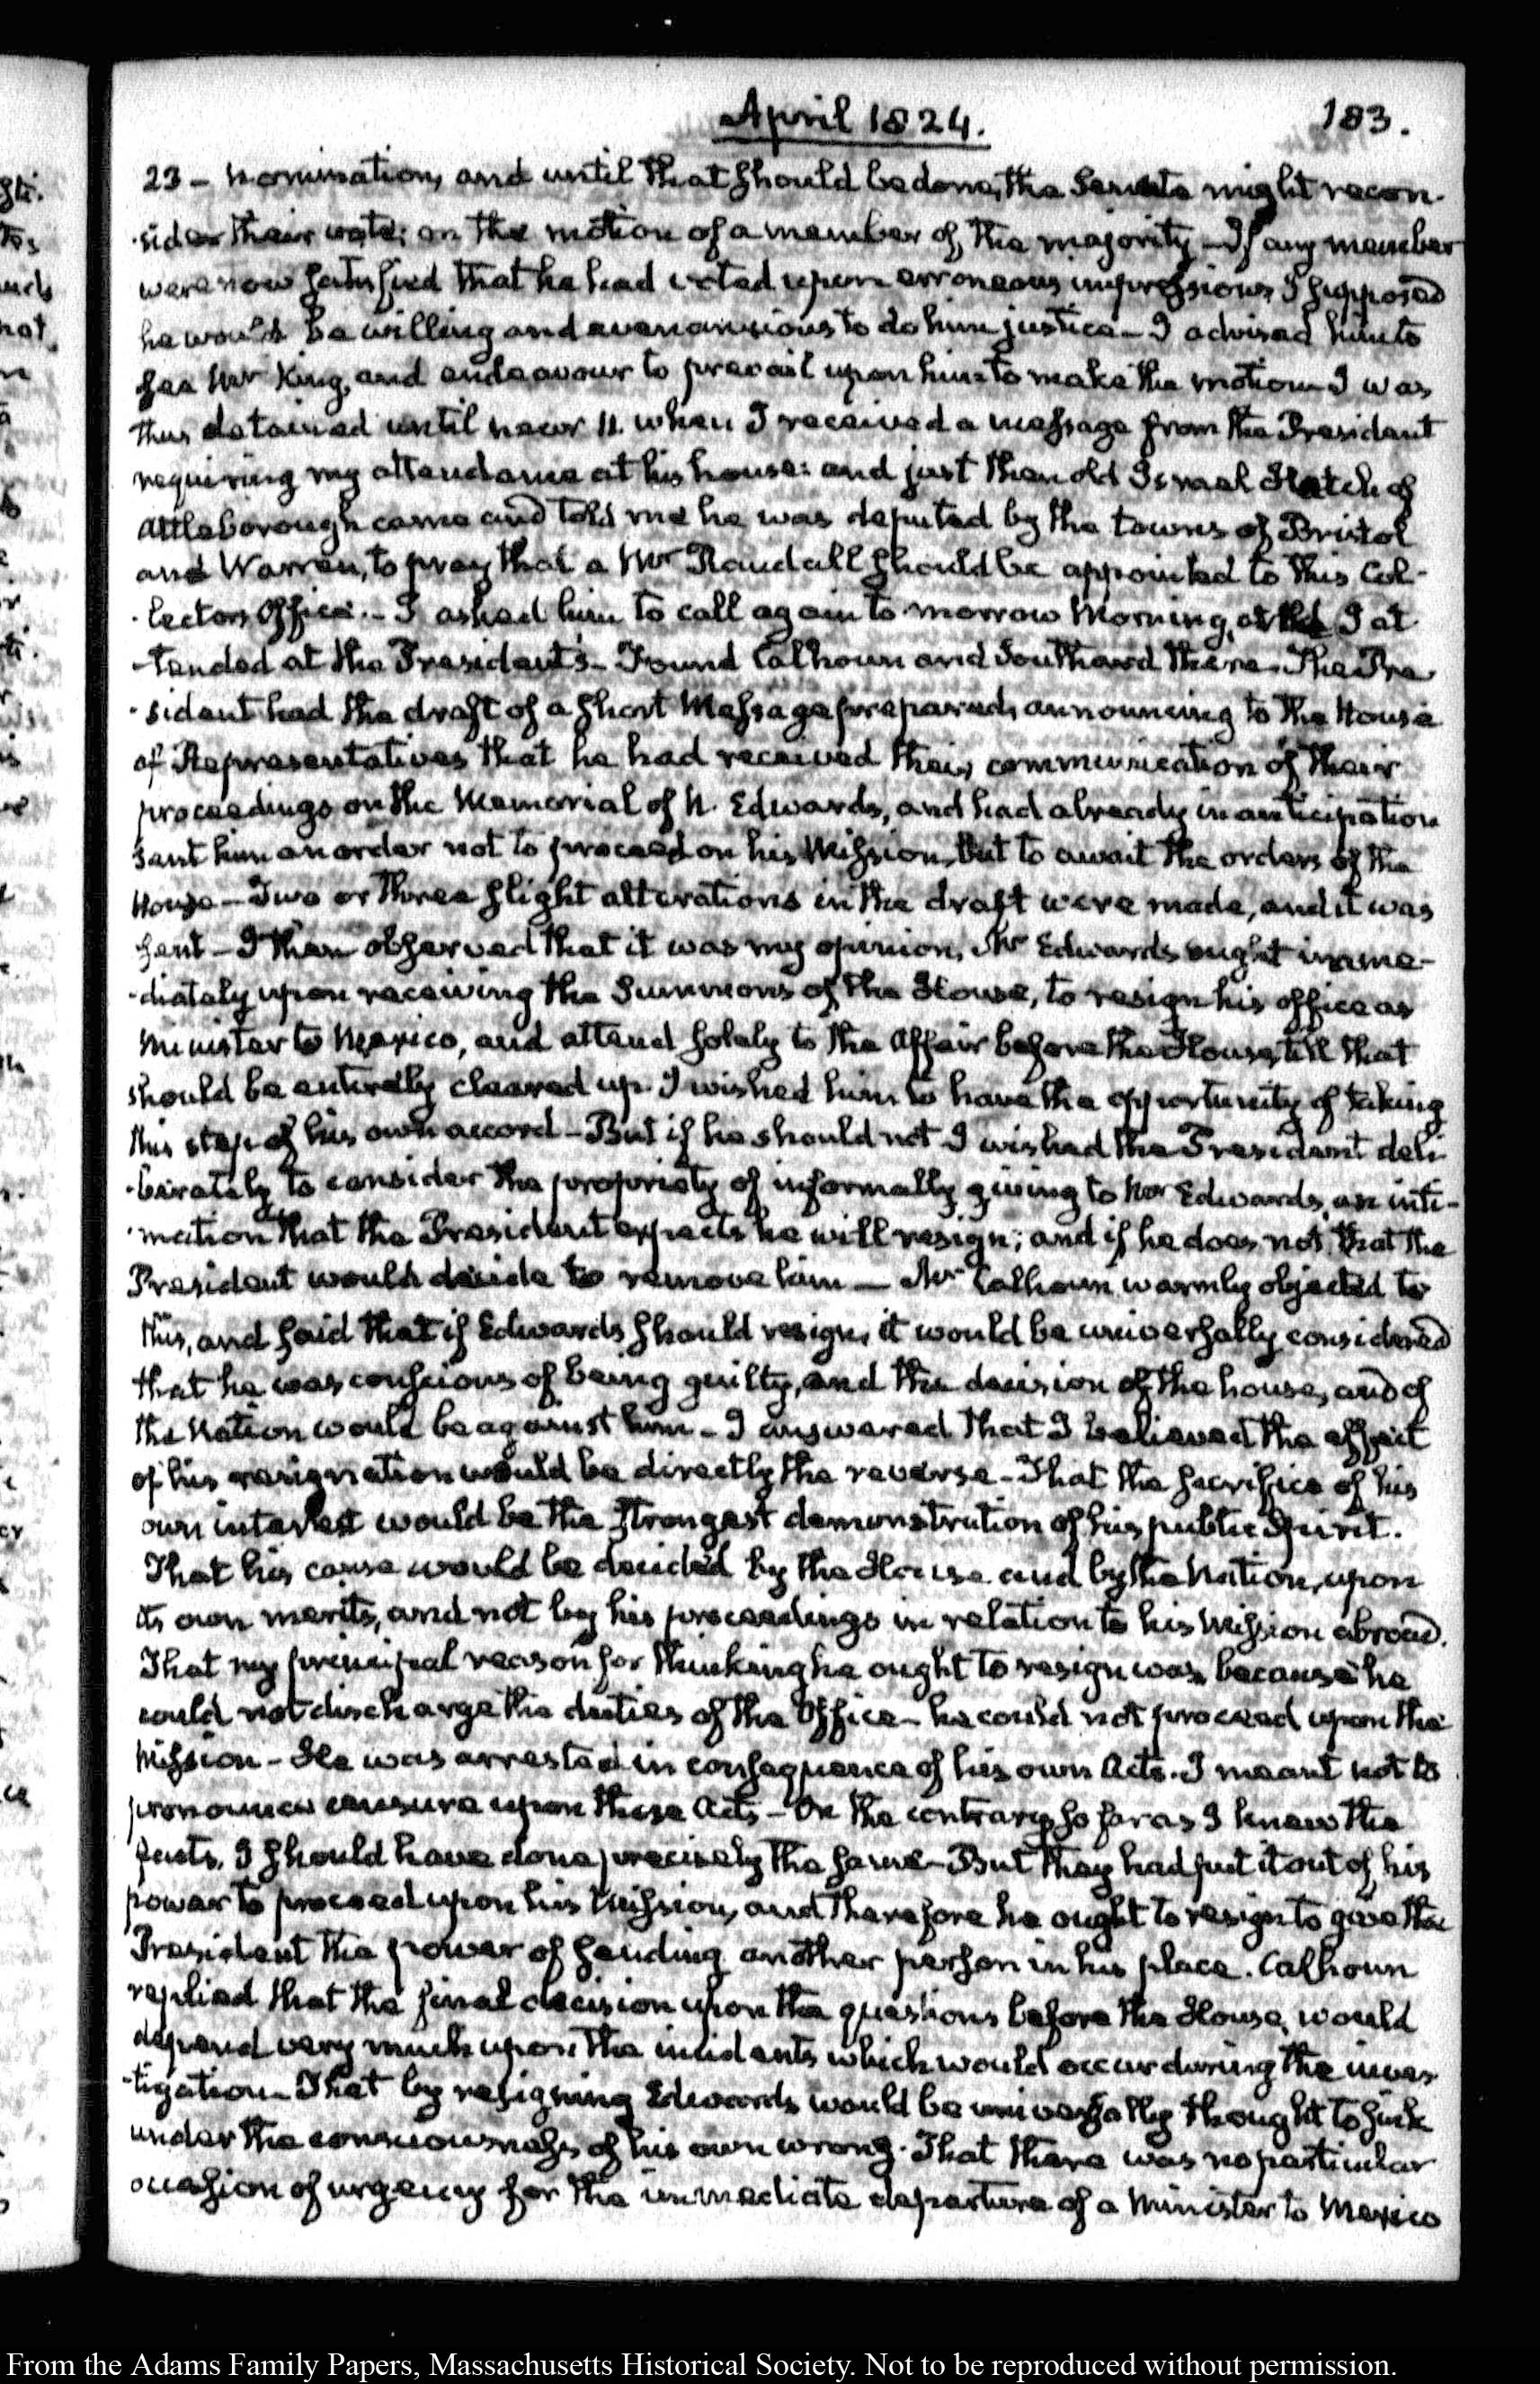 April 1824.
183.
23 - nomination, and until that should be done, the Senate might recon-
-sider their vote; on the motion of a member of the majority - If any member
were now satisfied that he had voted upon erroneous impressions I supposed
he would be willing and even anxious to do him justice - I advised him to
see Mr King, and endeavour to prevail upon him to make the motion - I was
thus detained until near 11. when I received a message from the President
requiring my attendance at his house: and just then old Israel Hatch of
Attleborough came and told me he was deputed by the towns of Bristol
and Warren, to pray that a Mr Randall should be appointed to this Col-
-lectors Office. - I asked him to call again to morrow Morning, and I at
-tended at the President's - Found Calhoun and Southard there - The Pre
-sident had the draft of a short Message prepared, announcing to the House
of Representatives that he had received their communication of their
proceedings on the Memorial of N. Edwards, and had already in anticipation
sent him an order not to proceed on his Mission, but to await the orders of the
House - Two or three slight alterations in the draft were made, and it was
sent - I then observed that it was my opinion, Mr Edwards ought imme-
-diately upon receiving the Summons of the House, to resign his office as
Minister to Mexico, and attend solely to the Affair before the House, till that
should be entirely cleared up. I wished him to have the opportunity of taking
this step of his own accord - But if he should not I wished the President deli-
-berately to consider the propriety of informally giving to Mr Edwards, an inti-
-mation that the President expects he will resign; and if he does not, that the
President would decide to remove him — Mr Calhoun warmly objected to
this, and said that if Edwards should resign, it would be universally considered
that he was conscious of being guilty, and the decision of the house, and of
the Nation would be against him - I answered that I believed the effect
of his resignation would be directly the reverse - That the sacrifice of his
own interest would be the strongest demonstration of his public Spirit.
That his cause would be decided by the House and by the Nation, upon
its own merits, and not by his proceedings in relation to his Mission abroad.
That my principal reason for thinking he ought to resign was, because he
could not discharge the duties of the Office - he could not proceed upon the
Mission - He was arrested in consequence of his own Acts. I meant not to
pronounce censure upon these Acts - On the contrary, so far as I knew the
facts, I should have done precisely the same - But they had put it out of his
power to proceed upon his Mission, and therefore he ought to resign to give the
President the power of sending another person in his place. Calhoun
replied that the final decision upon the questions before the House, would
depend very much upon the incidents which would occur during the inves-
-tigation - That by resigning Edwards would be universally thought to sink
under the consciousness of his own wrong. That there was no particular
occasion of urgency for the immediate departure of a Minister to Mexico
From the Adams Family Papers, Massachusetts Historical Society. Not to be reproduced without permission.